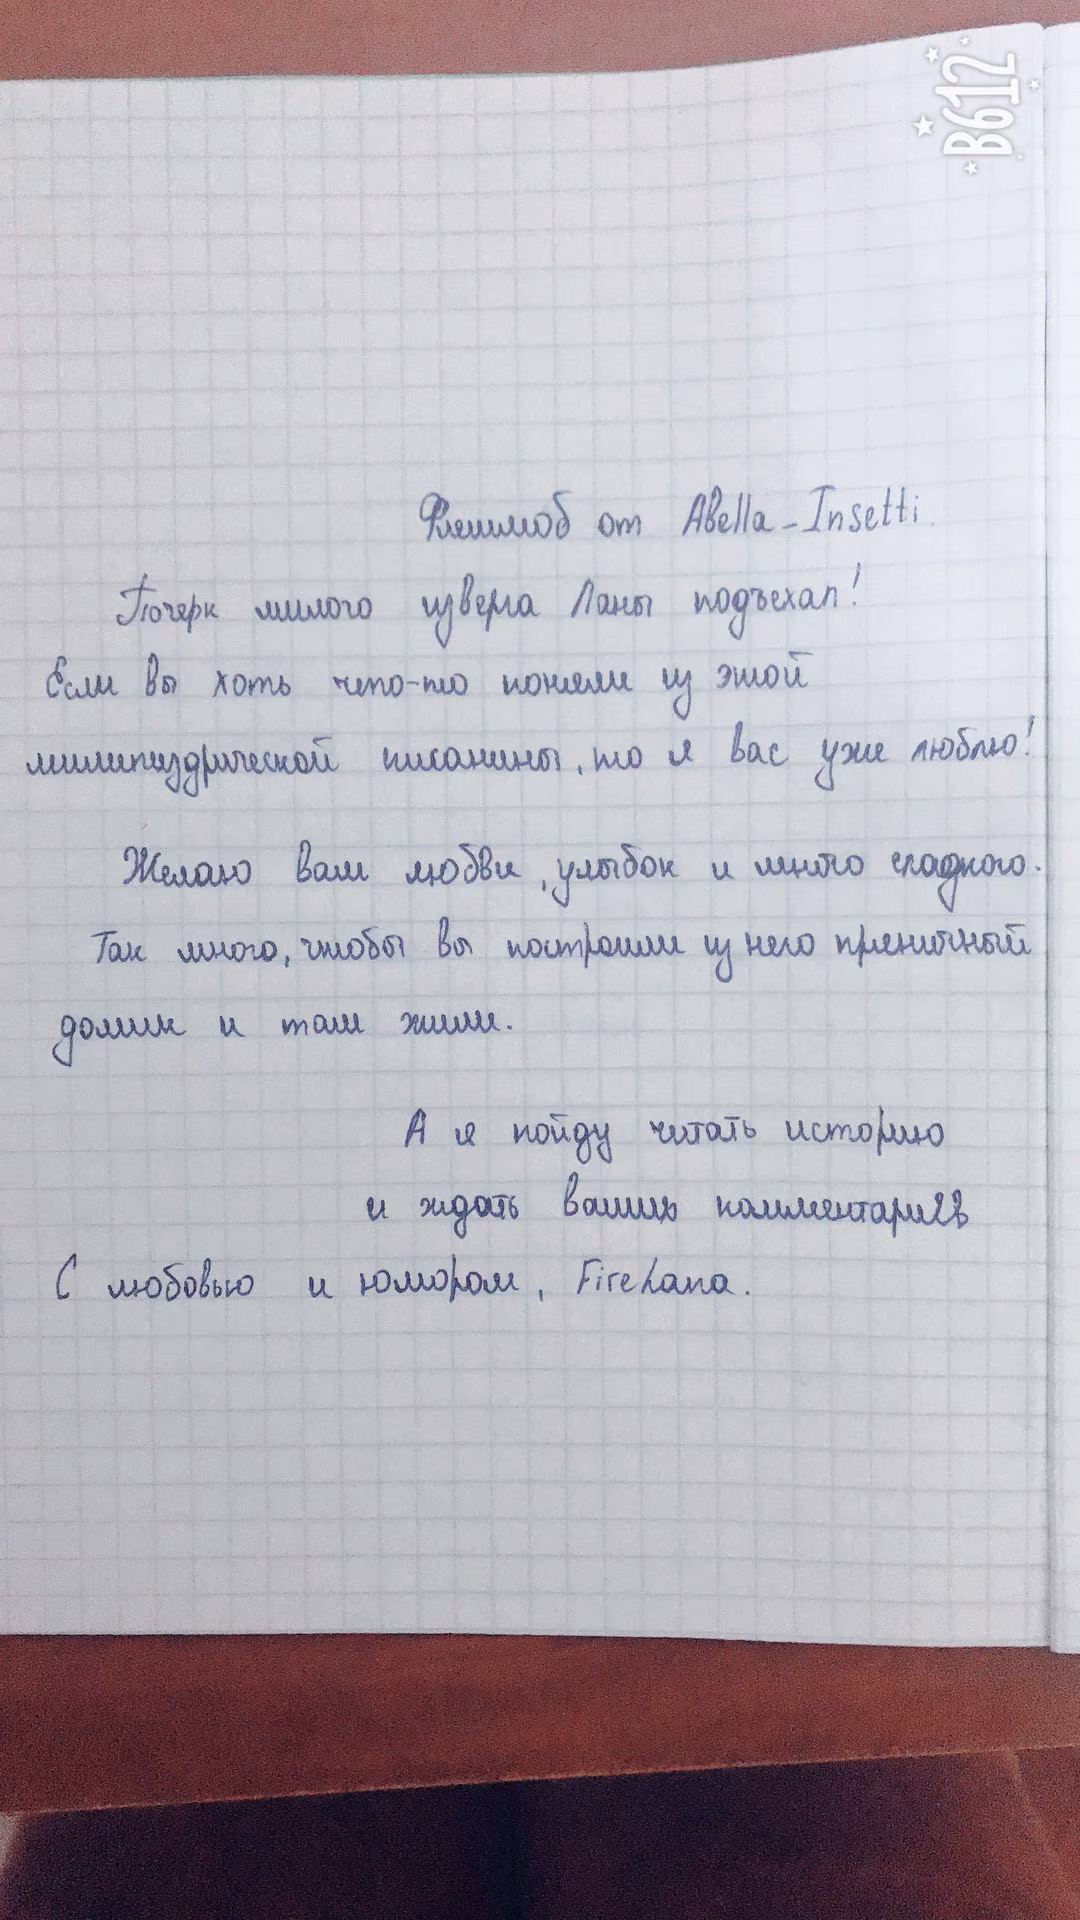 B612
Флешмоб от Abella-Insetti.
Почерк милого изверга Ланы подъехал!
Если вы хоть что-то поняли из этой
милипиздрической писанины, то я вас уже люблю!
Желаю вам любви, улыбок и много сладкого.
Так много, чтобы вы построили из него пряничный
домик и там жили.
А я пойду читать историю
и ждать ваших комментариев
С любовью и юмором, FireLana.